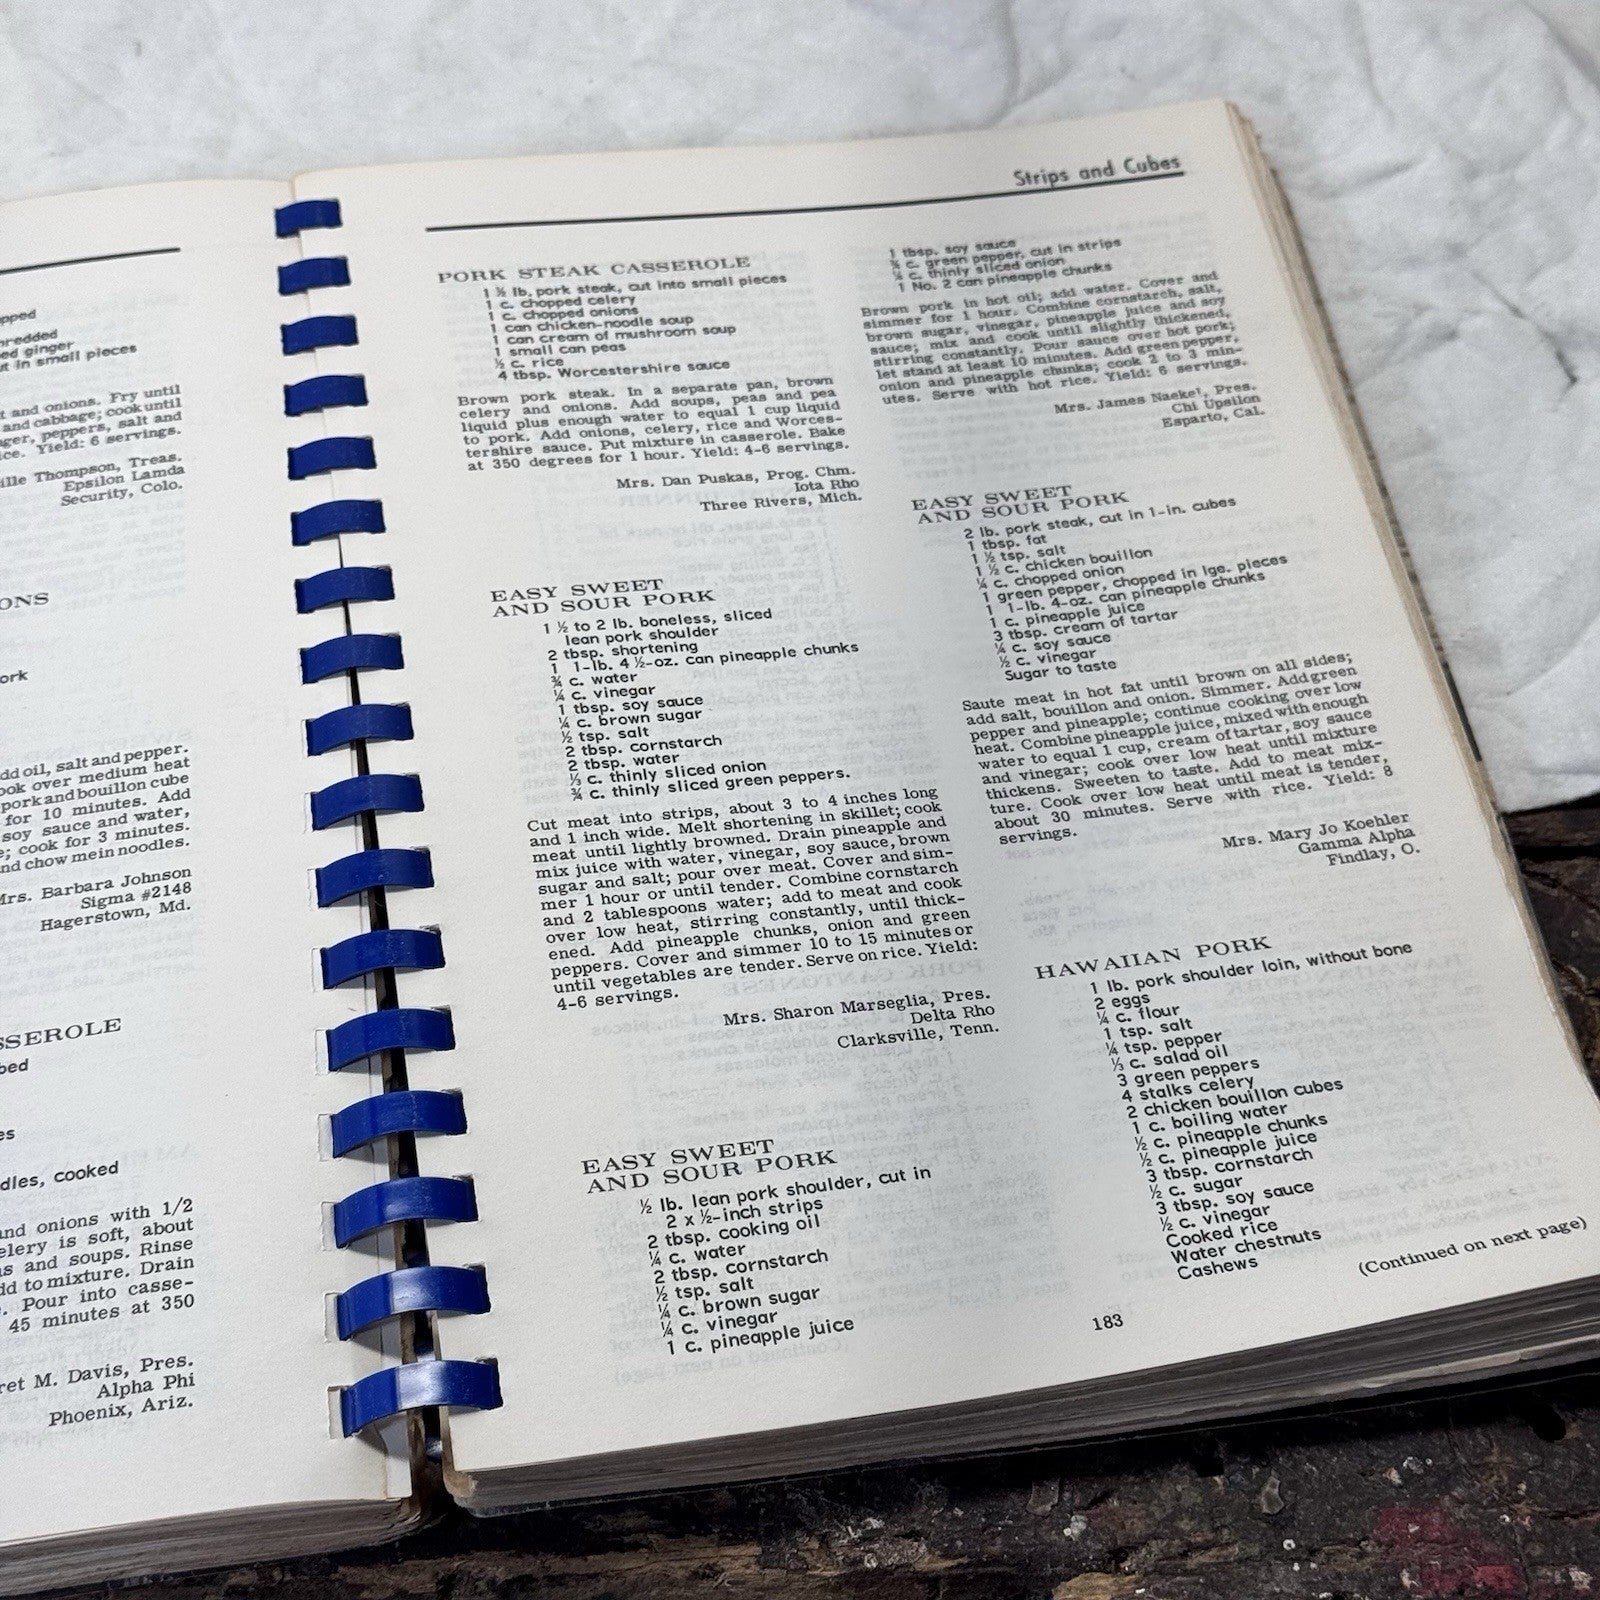 opped
hredded
ed ginger
ut in small pieces
t and onions. Fry until
and cabbage; cook until
ger, peppers, salt and
ice. Yield: 6 servings.
ille Thompson, Treas.
Epsilon Lamda
Security, Colo.
ONS
ork
dd oil, salt and pepper.
ook over medium heat
pork and bouillon cube
for 10 minutes. Add
soy sauce and water,
e; cook for 3 minutes.
nd chow mein noodles.
Mrs. Barbara Johnson
Sigma #2148
Hagerstown, Md.
SSEROLE
bed
es
dles, cooked
and onions with 1/2
elery is soft, about
as and soups. Rinse
dd to mixture. Drain
. Pour into casse-
45 minutes at 350
ret M. Davis, Pres.
Alpha Phi
Phoenix, Ariz.
Strips and Cubes
PORK STEAK CASSEROLE
1 ½ lb. pork steak, cut into small pieces
1 c. chopped celery
1 c. chopped onions
1 can chicken-noodle soup
1 can cream of mushroom soup
1 small can peas
½ c. rice
4 tbsp. Worcestershire sauce
Brown pork steak. In a separate pan, brown
celery and onions. Add soups, peas and pea
liquid plus enough water to equal 1 cup liquid
to pork. Add onions, celery, rice and Worces-
tershire sauce. Put mixture in casserole. Bake
at 350 degrees for 1 hour. Yield: 4-6 servings.
Mrs. Dan Puskas, Prog. Chm.
Iota Rho
Three Rivers, Mich.
EASY SWEET
AND SOUR PORK
1 ½ to 2 lb. boneless, sliced
lean pork shoulder
2 tbsp. shortening
1 1-lb. 4 ½-oz. can pineapple chunks
¾ c. water
¼ c. vinegar
1 tbsp. soy sauce
¼ c. brown sugar
½ tsp. salt
2 tbsp. cornstarch
2 tbsp. water
⅓ c. thinly sliced onion
¾ c. thinly sliced green peppers.
Cut meat into strips, about 3 to 4 inches long
and 1 inch wide. Melt shortening in skillet; cook
meat until lightly browned. Drain pineapple and
mix juice with water, vinegar, soy sauce, brown
sugar and salt; pour over meat. Cover and sim-
mer 1 hour or until tender. Combine cornstarch
and 2 tablespoons water; add to meat and cook
over low heat, stirring constantly, until thick-
ened. Add pineapple chunks, onion and green
peppers. Cover and simmer 10 to 15 minutes or
until vegetables are tender. Serve on rice. Yield:
4-6 servings.
Mrs. Sharon Marseglia, Pres.
Delta Rho
Clarksville, Tenn.
EASY SWEET
AND SOUR PORK
½ lb. lean pork shoulder, cut in
2 x ½-inch strips
2 tbsp. cooking oil
¼ c. water
2 tbsp. cornstarch
½ tsp. salt
¼ c. brown sugar
¼ c. vinegar
1 c. pineapple juice
1 tbsp. soy sauce
¾ c. green pepper, cut in strips
¼ c. thinly sliced onion
1 No. 2 can pineapple chunks
Brown pork in hot oil; add water. Cover and
simmer for 1 hour. Combine cornstarch, salt,
brown sugar, vinegar, pineapple juice and soy
sauce; mix and cook until slightly thickened,
stirring constantly. Pour sauce over hot pork;
let stand at least 10 minutes. Add green pepper,
onion and pineapple chunks; cook 2 to 3 min-
utes. Serve with hot rice. Yield: 6 servings.
Mrs. James Naekel, Pres.
Chi Upsilon
Esparto, Cal.
EASY SWEET
AND SOUR PORK
2 lb. pork steak, cut in 1-in. cubes
1 tbsp. fat
1 ½ tsp. salt
1 ½ c. chicken bouillon
¼ c. chopped onion
1 green pepper, chopped in lge. pieces
1 1-lb. 4-oz. can pineapple chunks
1 c. pineapple juice
3 tbsp. cream of tartar
¼ c. soy sauce
½ c. vinegar
Sugar to taste
Saute meat in hot fat until brown on all sides;
add salt, bouillon and onion. Simmer. Add green
pepper and pineapple; continue cooking over low
heat. Combine pineapple juice, mixed with enough
water to equal 1 cup, cream of tartar, soy sauce
and vinegar; cook over low heat until mixture
thickens. Sweeten to taste. Add to meat mix-
ture. Cook over low heat until meat is tender,
about 30 minutes. Serve with rice. Yield: 8
servings.
Mrs. Mary Jo Koehler
Gamma Alpha
Findlay, O.
HAWAIIAN PORK
1 lb. pork shoulder loin, without bone
2 eggs
¼ c. flour
1 tsp. salt
¼ tsp. pepper
⅓ c. salad oil
3 green peppers
4 stalks celery
2 chicken bouillon cubes
1 c. boiling water
½ c. pineapple chunks
½ c. pineapple juice
3 tbsp. cornstarch
½ c. sugar
3 tbsp. soy sauce
½ c. vinegar
Cooked rice
Water chestnuts
Cashews
(Continued on next page)
183